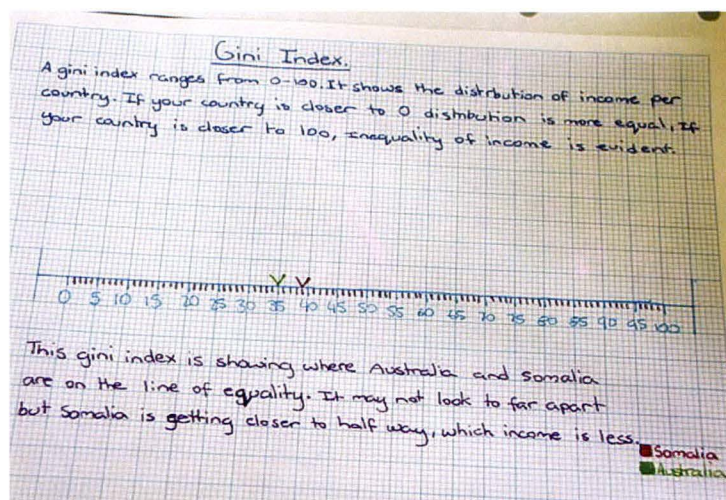 Gini Index.
A gini index ranges from 0-100. It shows the distrbution of income per
country. If your country is closer to 0 distrbution is more equal, If
your country is closer to 100, inequality of income is evident.
0 5 10 15 20 25 30 35 40 45 50 55 60 65 70 75 80 85 90 95 100
This gini index is showing where Australia and Somalia
are on the line of equality. It may not look to far apart
but Somalia is getting closer to half way, which income is less.
Somalia
Australia